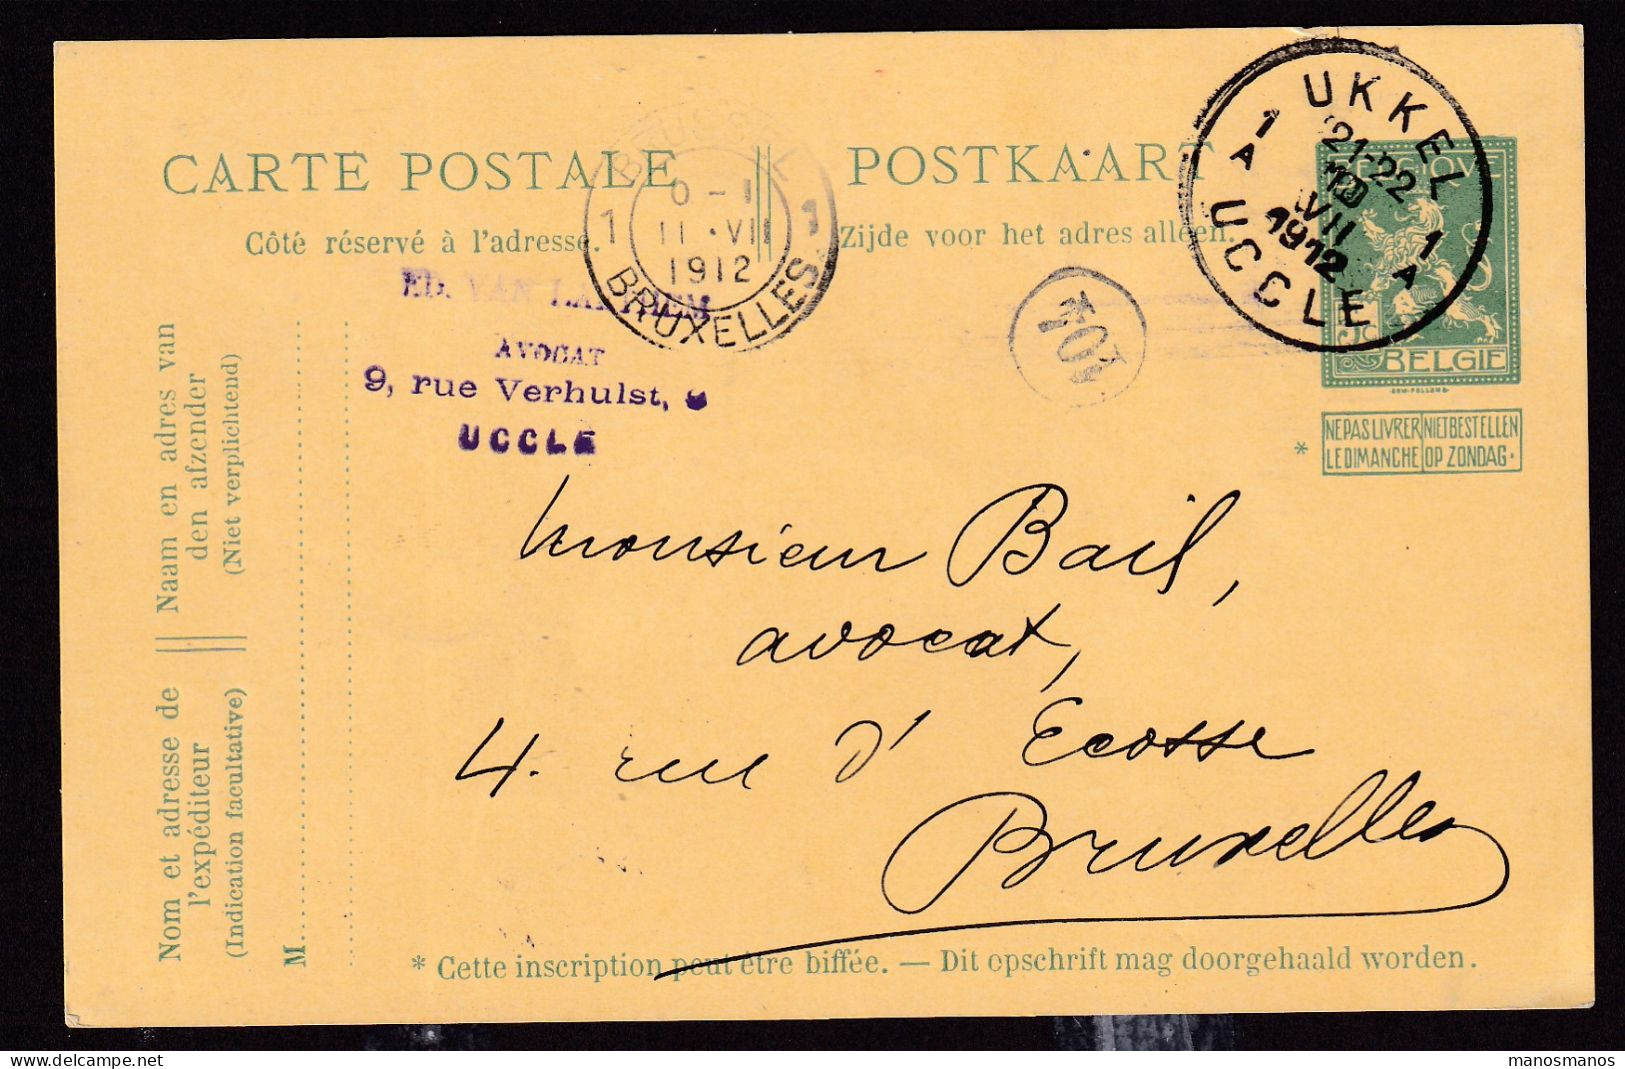 CARTE POSTALE || POSTKAART
Côté réservé à l'adresse. Zijde voor het adres alleen.
BRUSSEL
1 0-1 1
11 · VII
1912
BRUXELLES
UKKEL
1 A
21-22
10
VII
1912
1 A
UCCLE
BELGIE
NE PAS LIVRER NIET BESTELLEN
* LE DIMANCHE OP ZONDAG.
701
ED. VAN
AVOCAT
9, rue Verhulst, 9
UCCLE
Monsieur Bail,
avocat,
4. rue d'Ecosse
Bruxelles
Naam en adres van
den afzender
(Niet verplichtend)
Nom et adresse de
l'expéditeur
(Indication facultative)
M
* Cette inscription peut être biffée. — Dit opschrift mag doorgehaald worden.
manosmanos